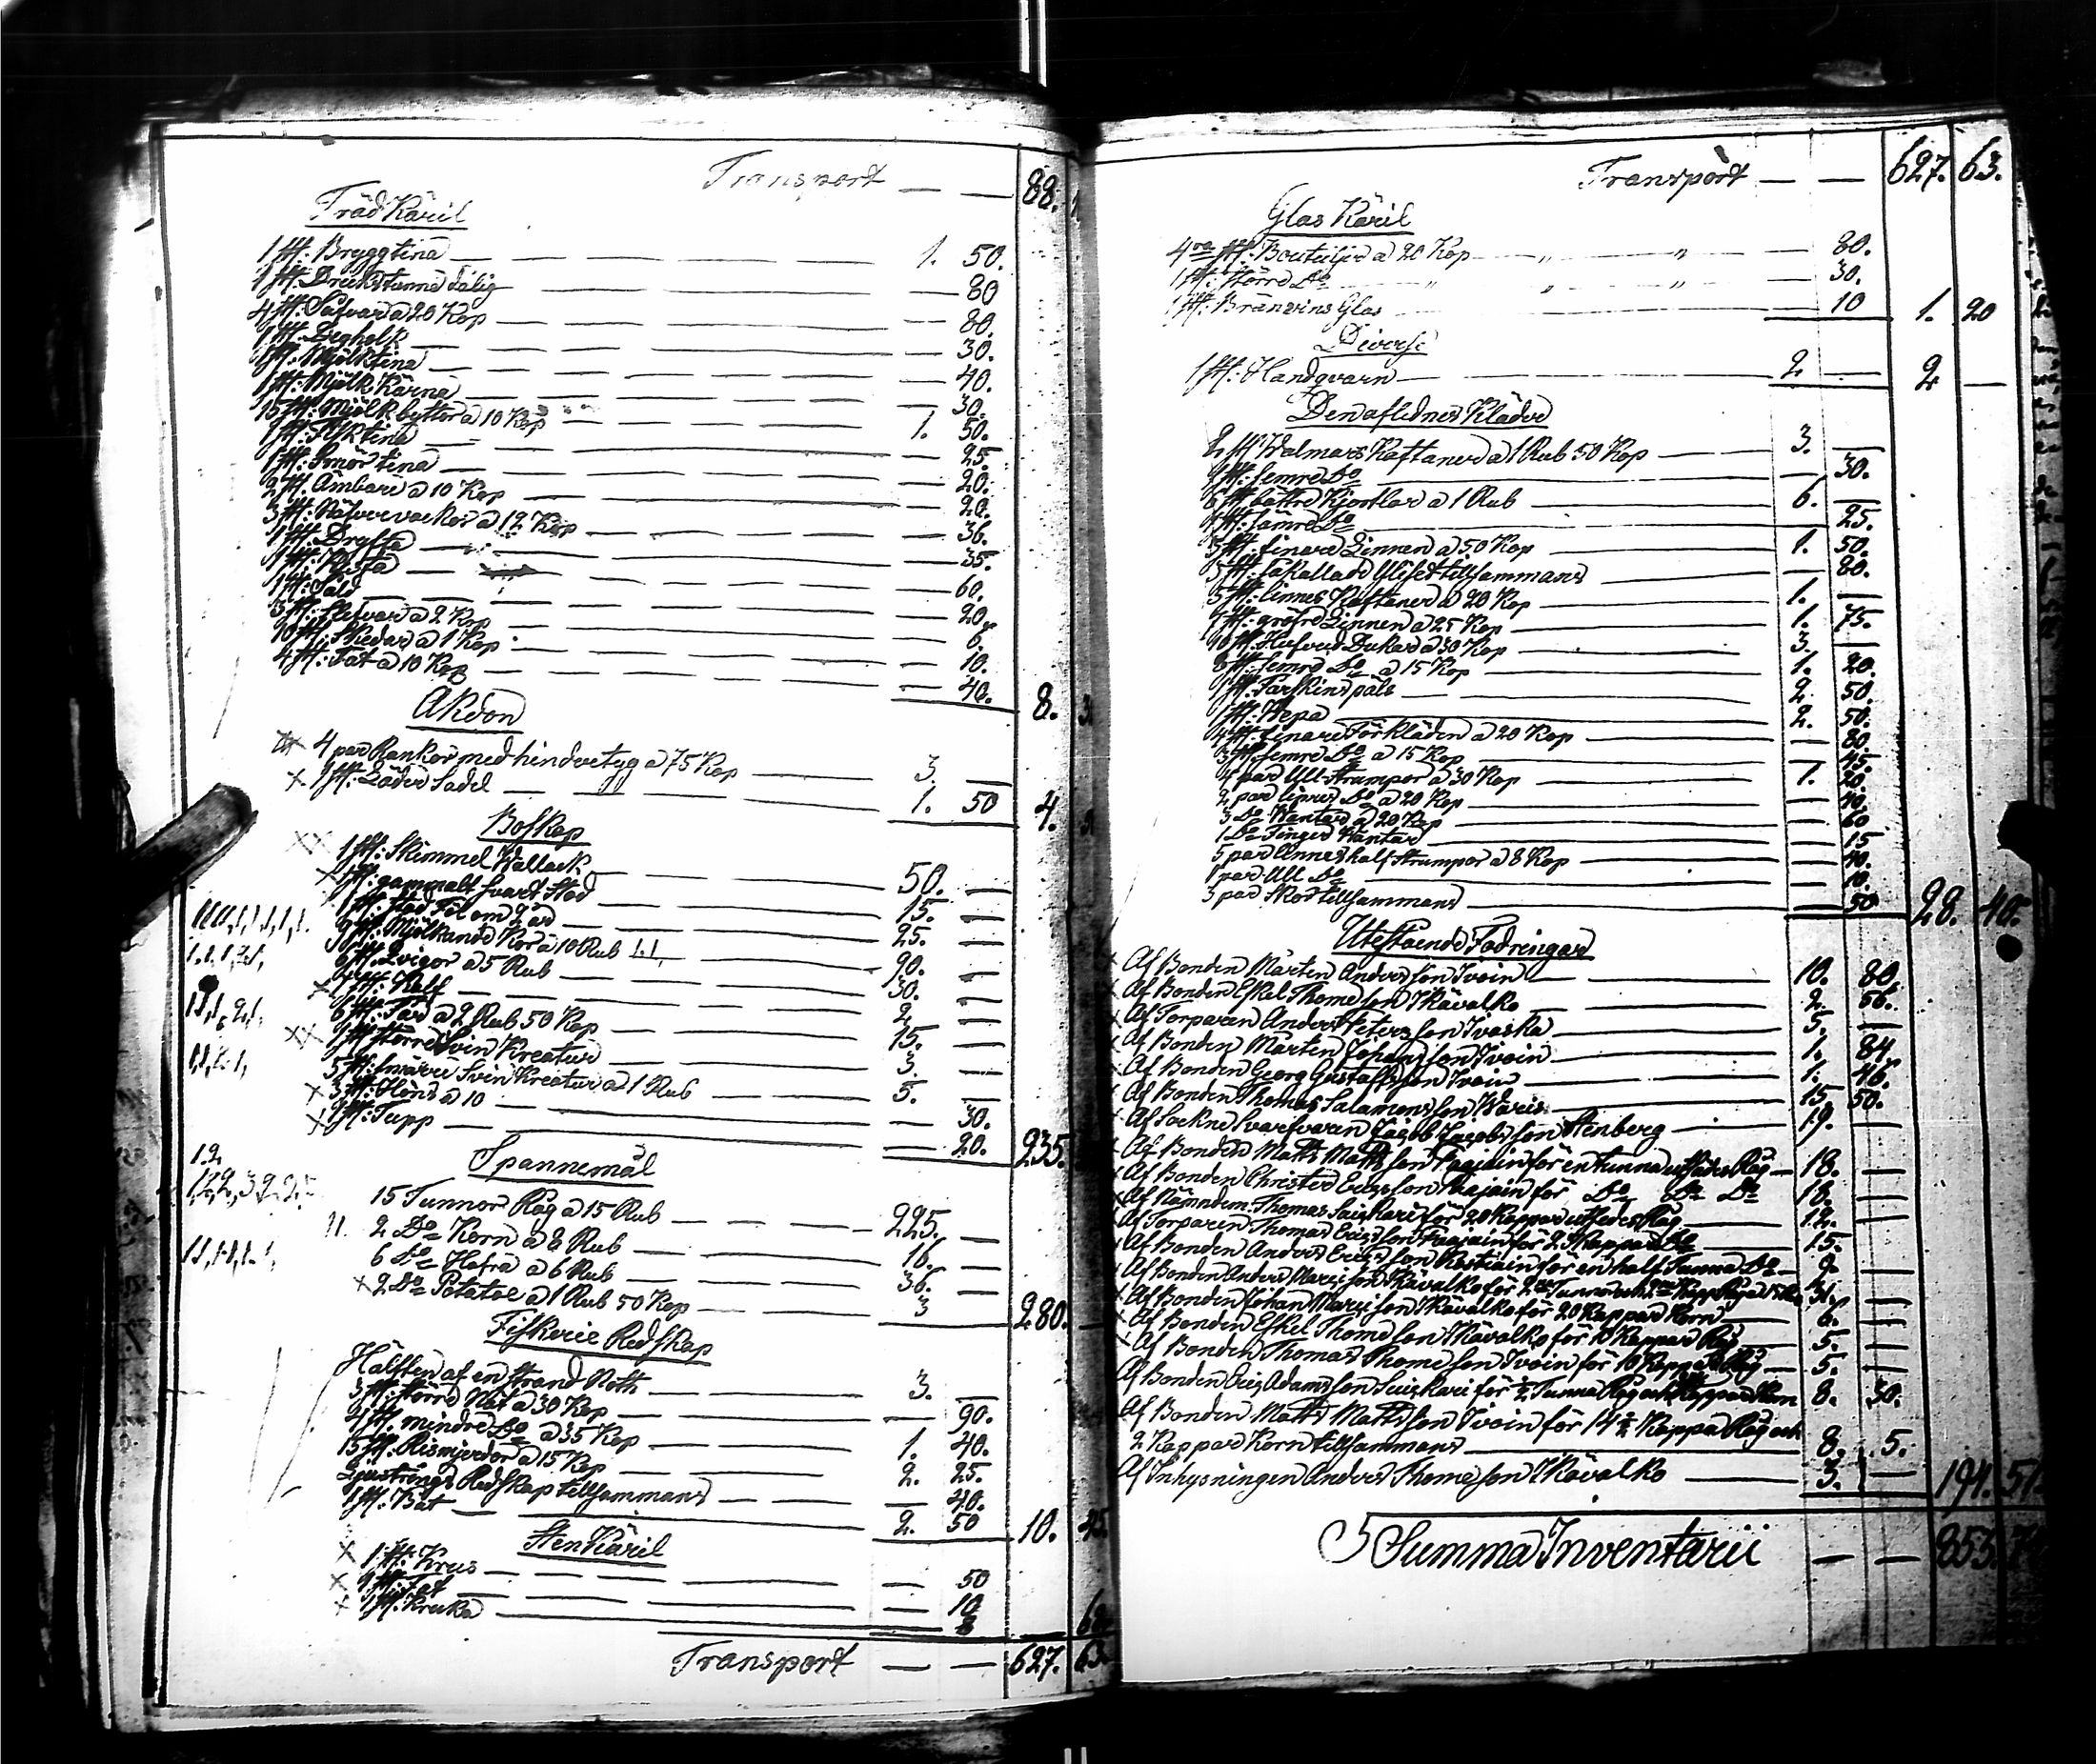 Transport — — 88.
Träd Käril
1 st: Bryggtina — 1. 50.
1 st: Drickstunna dålig — 80
4 st: Såfvar a 20 Kop — 80.
1 st: Degholk — 30.
1 st: Mjölktina — 40.
1 st: Mjölk Kärna — 30.
15 st: Mjölk byttor a 10 Kop 1. 50.
1 st: Fisktina — 25.
1 st: Smör tina — 20.
2 st: Ämbare a 10 Kop — 20.
3 st: a 12 Kop — 36.
1 st: Dryfta — 35.
1 st: — 60.
1 st: Såld — 20.
3 st: Slefvar a 2 Kop — 6.
10 st: Skedar a 1 Kop — 10.
4 st: Fat a 10 Kop — 40. 8.
Åkdon
4 par Rankor med hindertyg a 75 Kop — 3. —
1 st: Läder Sadel — 1. 50 4.
Boskap
1 st: Skimmel Wallack — 50. —
1 st: gammalt svart Stod — 15. —
1 st: Stod Föl om 2 år — 25. —
9 st: Mjölkande Kor a 10 Rub — 90. —
6 st: Qvigor a 5 Rub — 30. —
1 st: Kalf — 2. —
6 st: Får a 2 Rub 50 Kop — 15. —
1 st: större Svin Kreatur — 3. —
5 st: smärre Svin Kreatur a 1 Rub — 5. —
3 st: Höns a 10 — 30.
1 st: Tupp — 20. 235.
Spannemål
15 Tunnor Råg a 15 Rub — 225. —
2 Do Korn a 8 Rub — 16. —
6 Do Hafra a 6 Rub — 36. —
2 Do Potatoe a 1 Rub 50 Kop — 3 280.
Fiskerie Redskap
Hälften af en Strand Noth — 3. —
3 st: större Nät a 30 Kop — 90.
4 st. mindre Do a 35 Kop — 1. 40.
15 st. Rismjerdor a 15 Kop — 2. 25.
Ljustrings Redskap tillsammans — 40.
1 st: Båt — 2. 50 10. 45.
Sten Käril
1 st: Krus — 50
1 st: Fat — 10
1 st: Kruka — 8
Transport — — 627. 63.
Transport — — 627. 63.
Glas Käril
4ra st: Boutelje a 20 Kop — 80.
1 st: större Do — 30.
1 st: Bränvins Glas — 10 1. 20
Diverse
1 st: Handqvarn — 2 — 2 —
Den aflednes Kläder
2 st Walmars Kaftaner a 1 Rub 50 Kop — 3. —
1 st: semre Do — 30.
6 st bättre Kjortlar a 1 Rub — 6. —
1 st: sämre Do — 25.
3 st: finare Linnen a 50 Kop — 1. 50.
3 st: såkallade tillsammans — 80.
5 st: linnes Kaftaner a 20 Kop — 1. —
7 st: gröfre Linnen a 25 Kop — 1. 75.
10 st Hufvud Dukar a 30 Kop — 3. —
8 st: semre Do a 15 Kop — 1. 20.
1 st Fårskins päls — 2. 50.
1 st: Wepa — 2. 50.
4 st: finare Förkläden a 20 Kop — 80.
3 st semre Do a 15 Kop — 45.
4 par Ull Strumpor a 30 Kop — 1. 20.
2 par Do a 20 Kop — 40.
3 Do Wantar a 20 Kop — 60
1 Do Finger Wantar — 15
5 par half Strumpor a 8 Kop — 40.
1 par Ull Do — 10.
3 par Skor tillsammans — 50 28. 40.
Utestående Fodringar
Af Bonden Mårten Andersson Ivoin — 10. 80.
Af Bonden Eskel Thomesson Kävalko — 2. 56.
Af Torparen Anders Petersson Ivaska — 5. —
Af Bonden Mårten Johansson Ivoin — 1. 84.
Af Bonden Georg Gustafsson Ivoin — 1. 46.
Af Bonden Thomas Salamonsson Wäris — 15 50.
Af Sockne Svarfvaren Jacob Jacobsson Stenberg — 19. —
Af Bonden Matts Mattsson Paajain för en tunna utsädes Råg — 18. —
Af Bonden Christer Ericsson Paajain för Do Do Do 18. —
Af Nämndem. Thomas Suiskari för 20 Kappar utsädes Råg — 12. —
Af Torparen Thomas Ericsson Paajain för 25 Kappar Do — 15. —
Af Bonden Anders Ericsson Kostiain för en half Tunna Do — 9. —
Af Bonden Anders Marcisson Kävalko för 2 Tunnor
Af Bonden Johan Marcisson Kävalko för 20 Kappar Korn — 6. —
Af Bonden Eskel Thomesson Kävalko för 10 Kappar Råg — 5. —
Af Bonden Thomas Thomesson Ivoin för 10 Kappar Råg — 5. —
Af Bonden Eric Adamsson Suiskari för ½ Tunna Råg och Kappar Korn 8. 30.
Af Bonden Matts Mattsson Ivoin för 14½ Kappa Råg och
2 Kappar Korn tillsammans — 8. 5.
Af Inhysningen Anders Thomesson Kävalko — 3. — 194. 51.
Summa Inventarii — — 853.